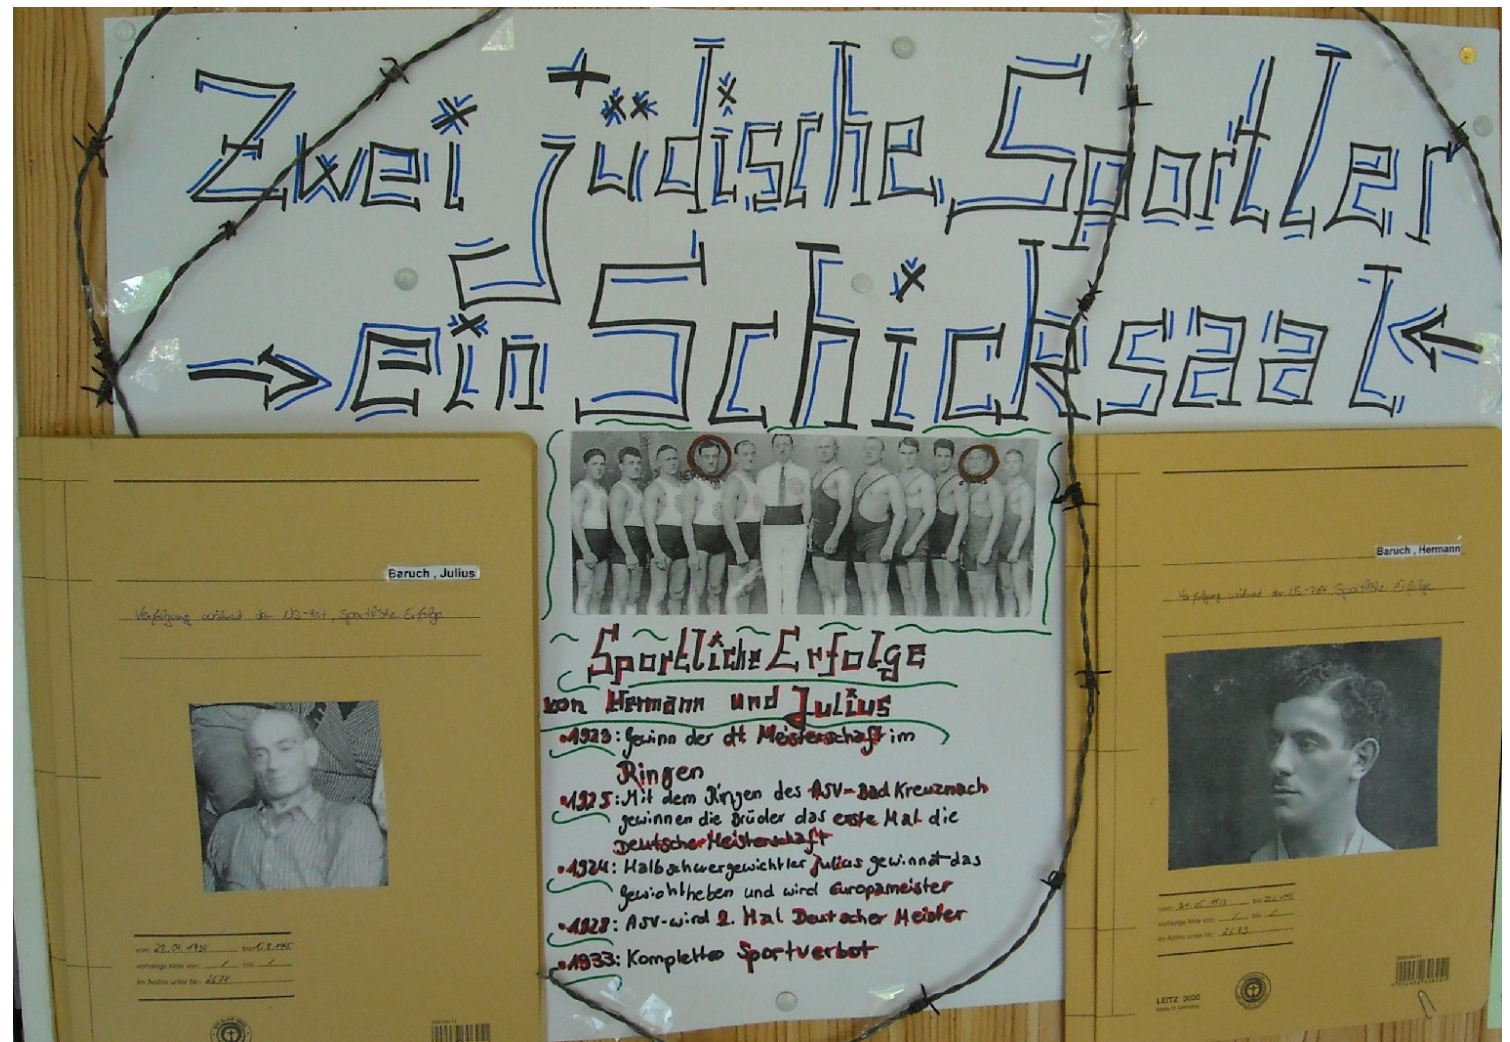 Zwei jüdische Sportler
ein Schicksaal
Baruch , Julius
Verfolgung während der NS-Zeit, Sportliche Erfolge
vom: bis:
vorherige Akte von: / bis /
im Archiv unter Nr.:
HERMANN
JULIUS
Sportliche Erfolge
von Hermann und Julius
•1923: Gewinn der dt. Meisterschaft im
Ringen
•1925: Mit dem Ringen des ASV-Bad Kreuznach
gewinnen die Brüder das erste Mal die
Deutscher Meisterschaft
•1924: Halbschwergewichtler Julius gewinnt das
Gewichtheben und wird Europameister
•1928: ASV-wird 2. Mal Deutscher Meister
•1933: Komplettes Sportverbot
Baruch , Hermann
Verfolgung während der NS-Zeit, Sportliche Erfolge
vom: bis:
vorherige Akte von: / bis: /
im Archiv unter Nr.:
LEITZ 3030
Made in Germany